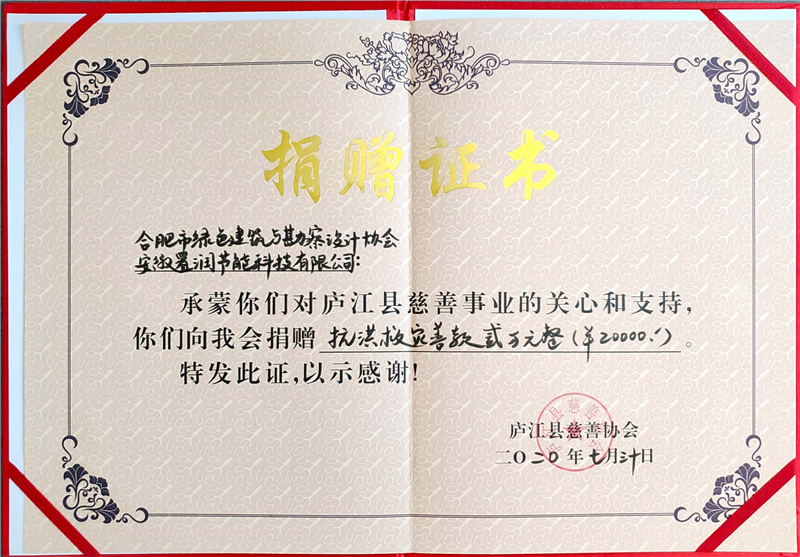 捐赠证书
合肥市绿色建筑与勘察设计协会
安徽置润节能科技有限公司:
承蒙你们对庐江县慈善事业的关心和支持,
你们向我会捐赠 抗洪救灾善款贰万元整(¥20000.-)。
特发此证,以示感谢!
庐江县慈善协会
二〇二〇年七月三十日